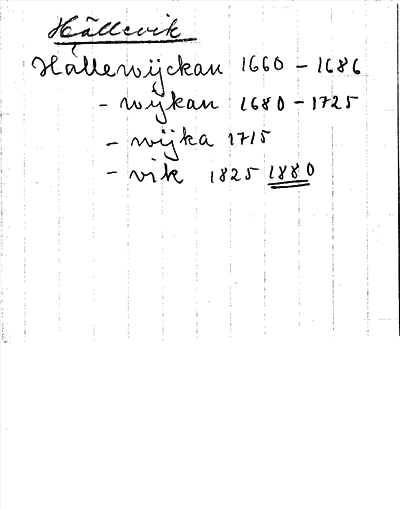 Hällevik
Hällewijckan 1660 - 1686
- wijkan 1680 - 1725
- wijka 1715
- vik 1825 1880